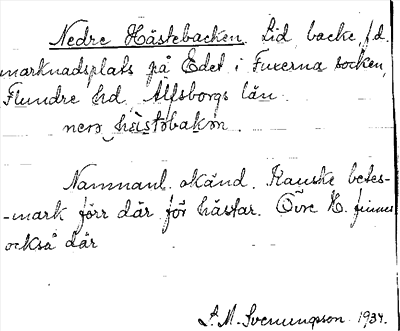 Nedre Hästebacken. Lid, backe, f.d.
marknadsplats på Edet i Fuxerna socken,
Flundre hd, Älfsborgs län.
hästəbakən.
Namnanl. okänd. Kanske betes-
-mark förr där för hästar. Övre H. finnes
också där
S. M. Svenungsson 1934.